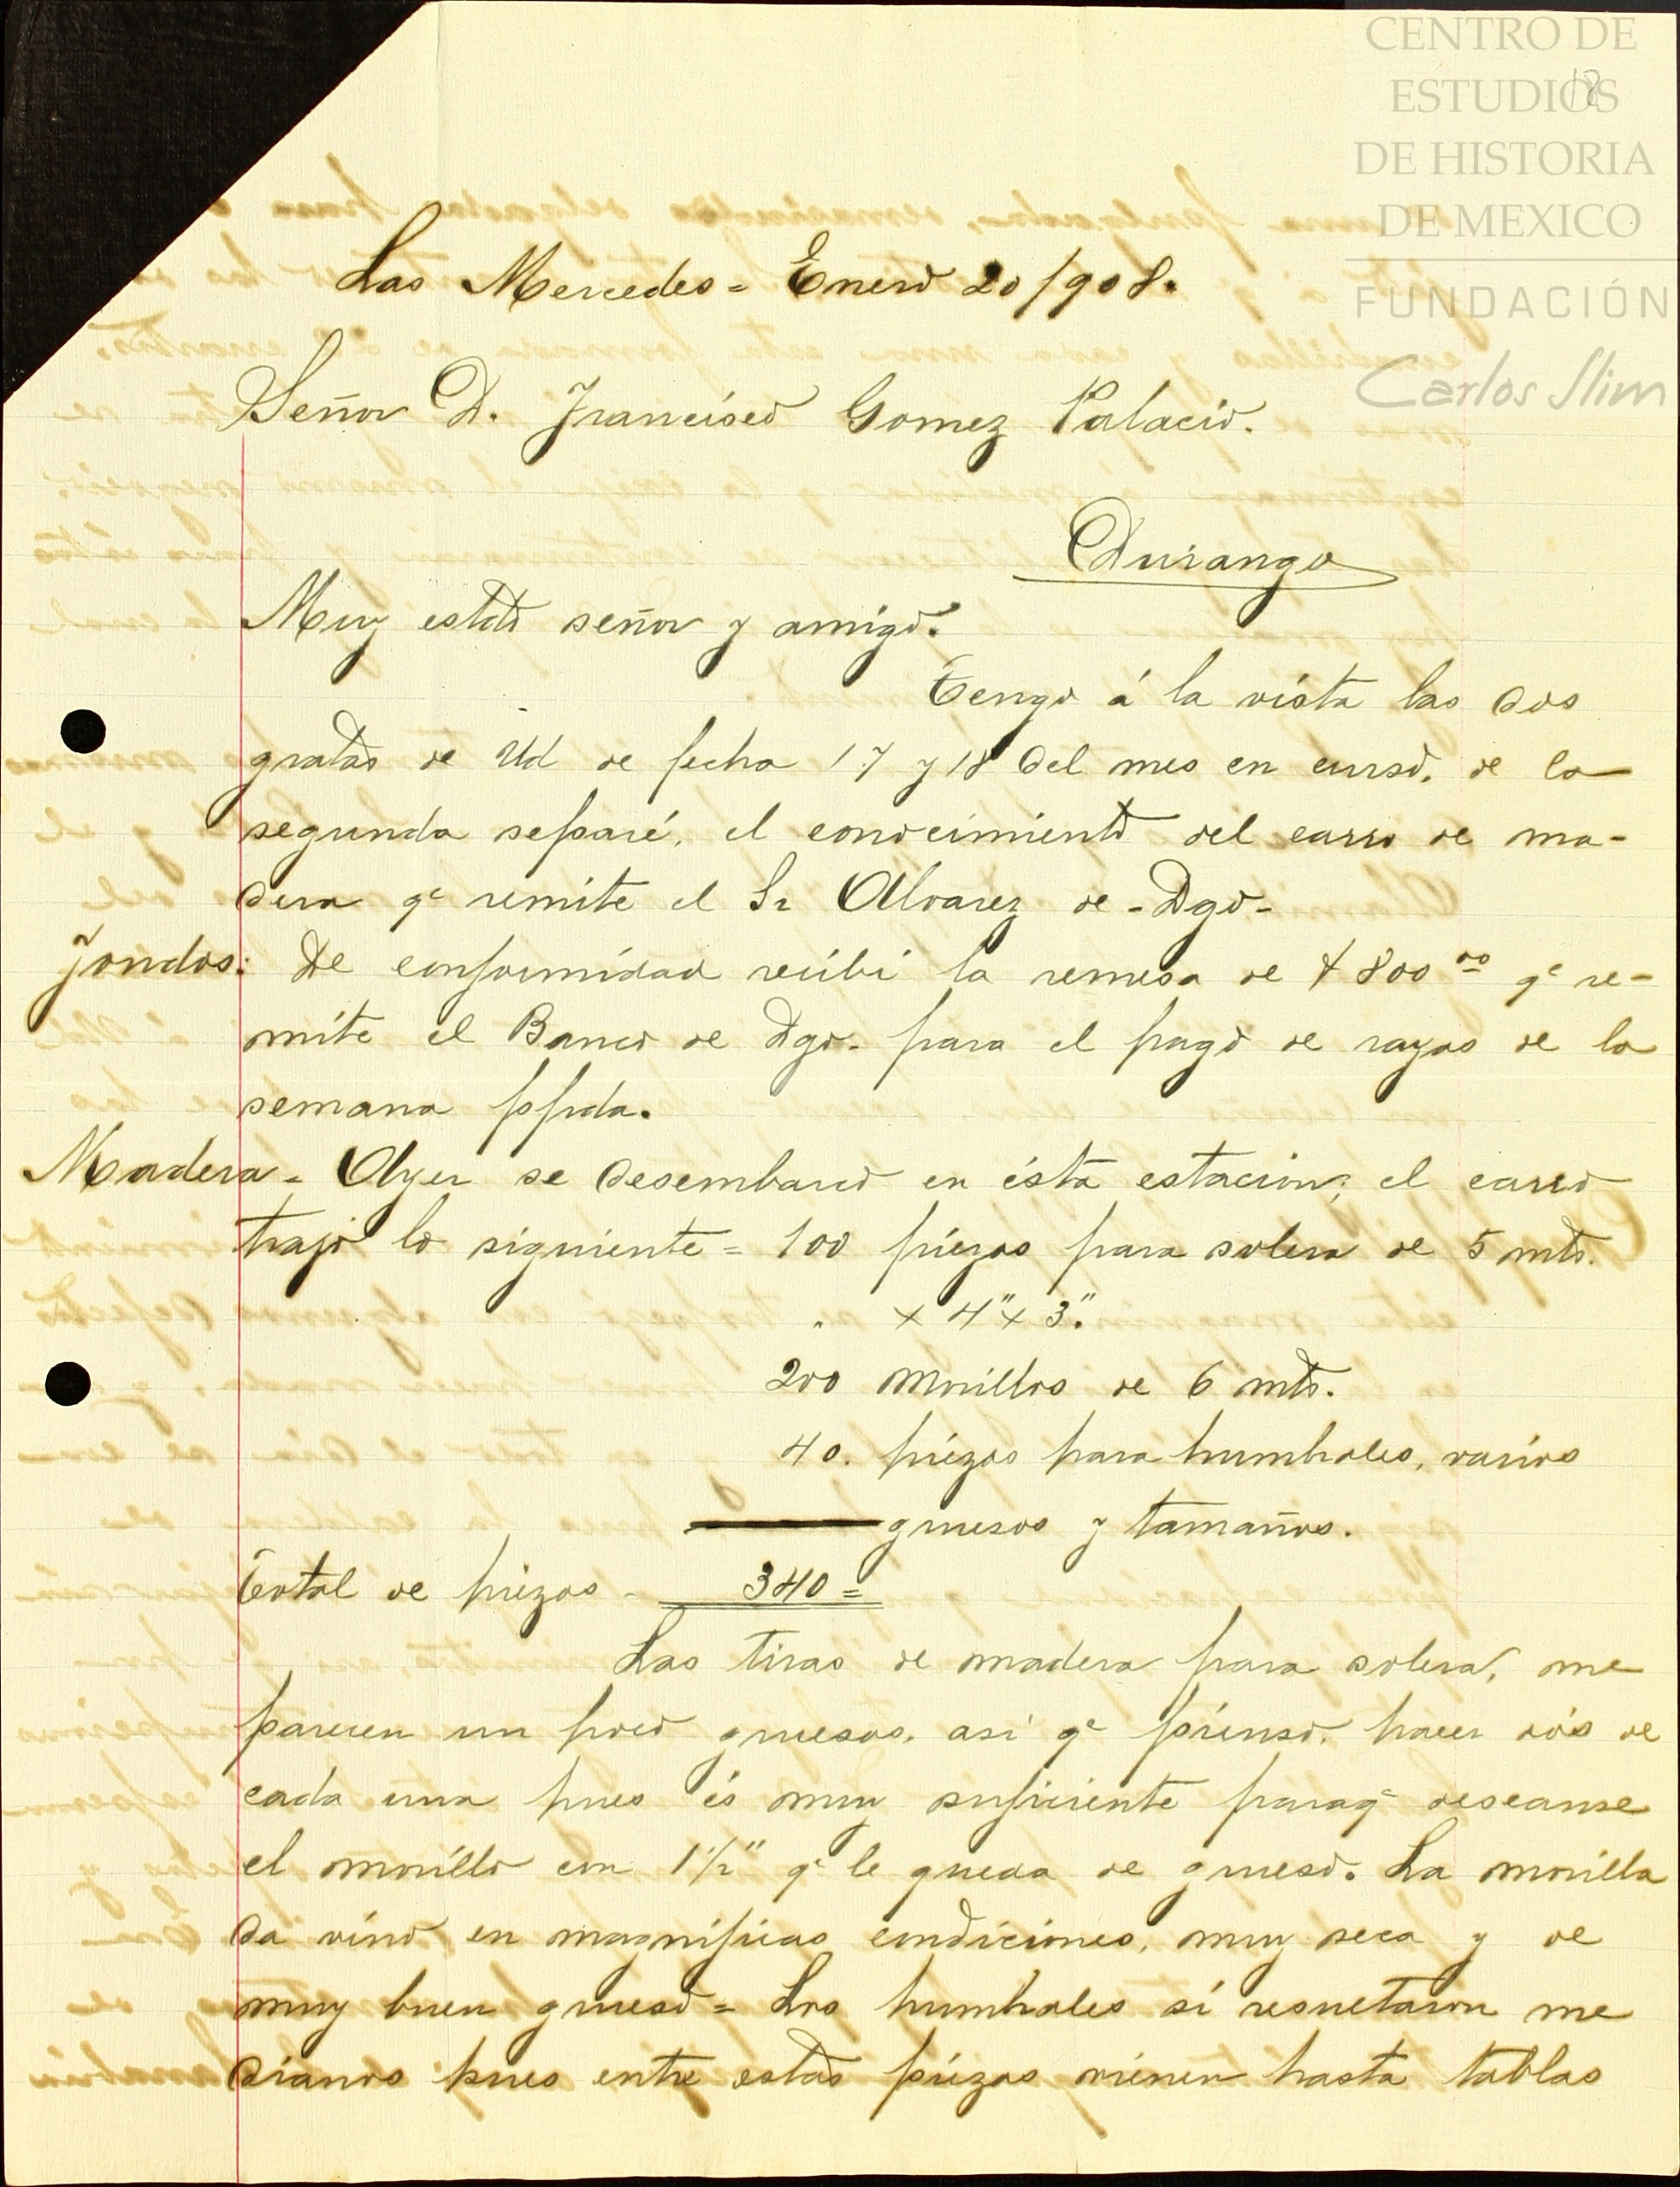 CENTRO DE
ESTUDIOS
DE HISTORIA
DE MEXICO
FUNDACIÓN
Carlos Slim
18
Las Mercedes = Enero 20/908.
Señor D. Francisco Gomez Palacio.
Durango
Muy estdo señor y amigo.
Tengo á la vista las dos
gratas de Ud de fecha 17 y 18 del mes en curso, de la
segunda separé, el conocimiento del carro de ma-
dera qe remite el Sr Alvarez de - Dgo -
Fondos: De conformidad recibi la remesa de $800 00 qe re-
mite el Banco de Dgo. para el pago de rayas de la
semana ppda.
Madera - Ayer se desembarcó en ésta estacion; el carro
trajo lo siguiente = 100 piezas para solera de 5 mts.
" × 4" × 3".
200 morillos de 6 mts.
40. piezas para humbrales, varios
gruesos y tamaños.
Total de piezas - 340 =
Las tiras de madera para solera, me
parecen un poco gruesas, asi qe pienso, hacer dós de
cada una pues és muy suficiente paraqe descanse
el morillo con 1 1/2" qe le queda de grueso. La morilla
da vino en magnificas condiciones, muy seca y de
muy buen grueso = Los humbrales si resultaron me
dianos pues entre estas piezas vienen hasta tablas